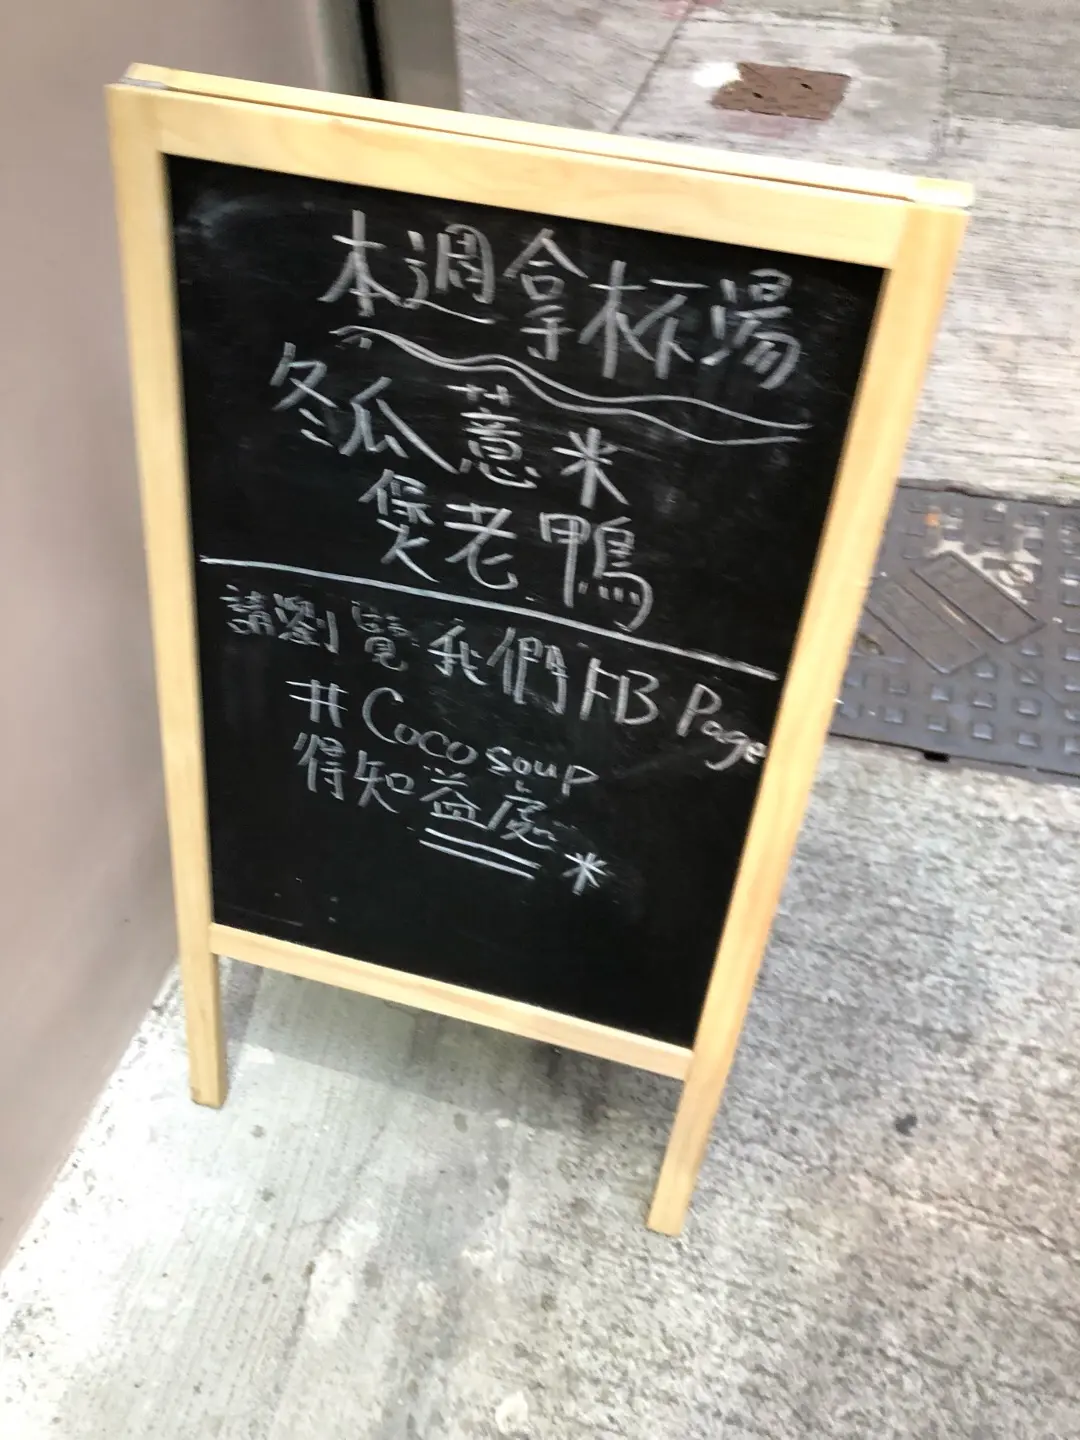 本週拿杯湯
冬瓜薏米
煲老鴨
請瀏覽我們FB Page
#Coco soup
得知益處*